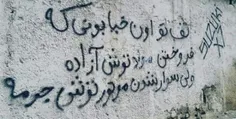 تف تو اون خیابونی که
فروختن سولاتوش آزاده
ولی سوار شدن موتور توش جرمه